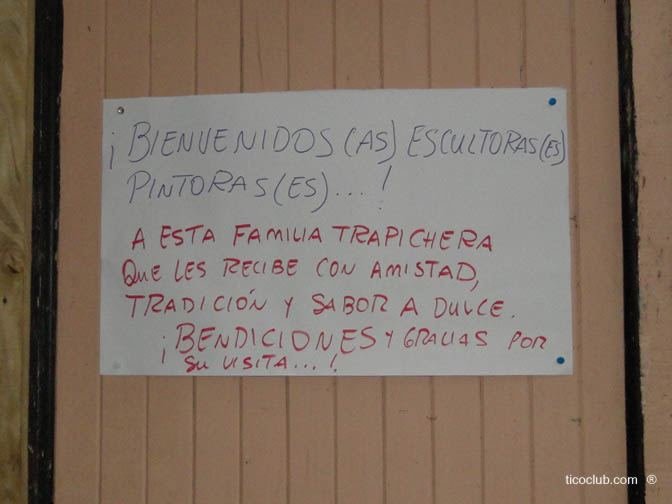 ¡BIENVENIDOS(AS) ESCULTORAS(ES)
PINTORAS(ES)...!
A ESTA FAMILIA TRAPICHERA
QUE LES RECIBE CON AMISTAD,
TRADICIÓN Y SABOR A DULCE.
¡BENDICIONES Y GRACIAS POR
SU VISITA...!
ticoclub.com ®